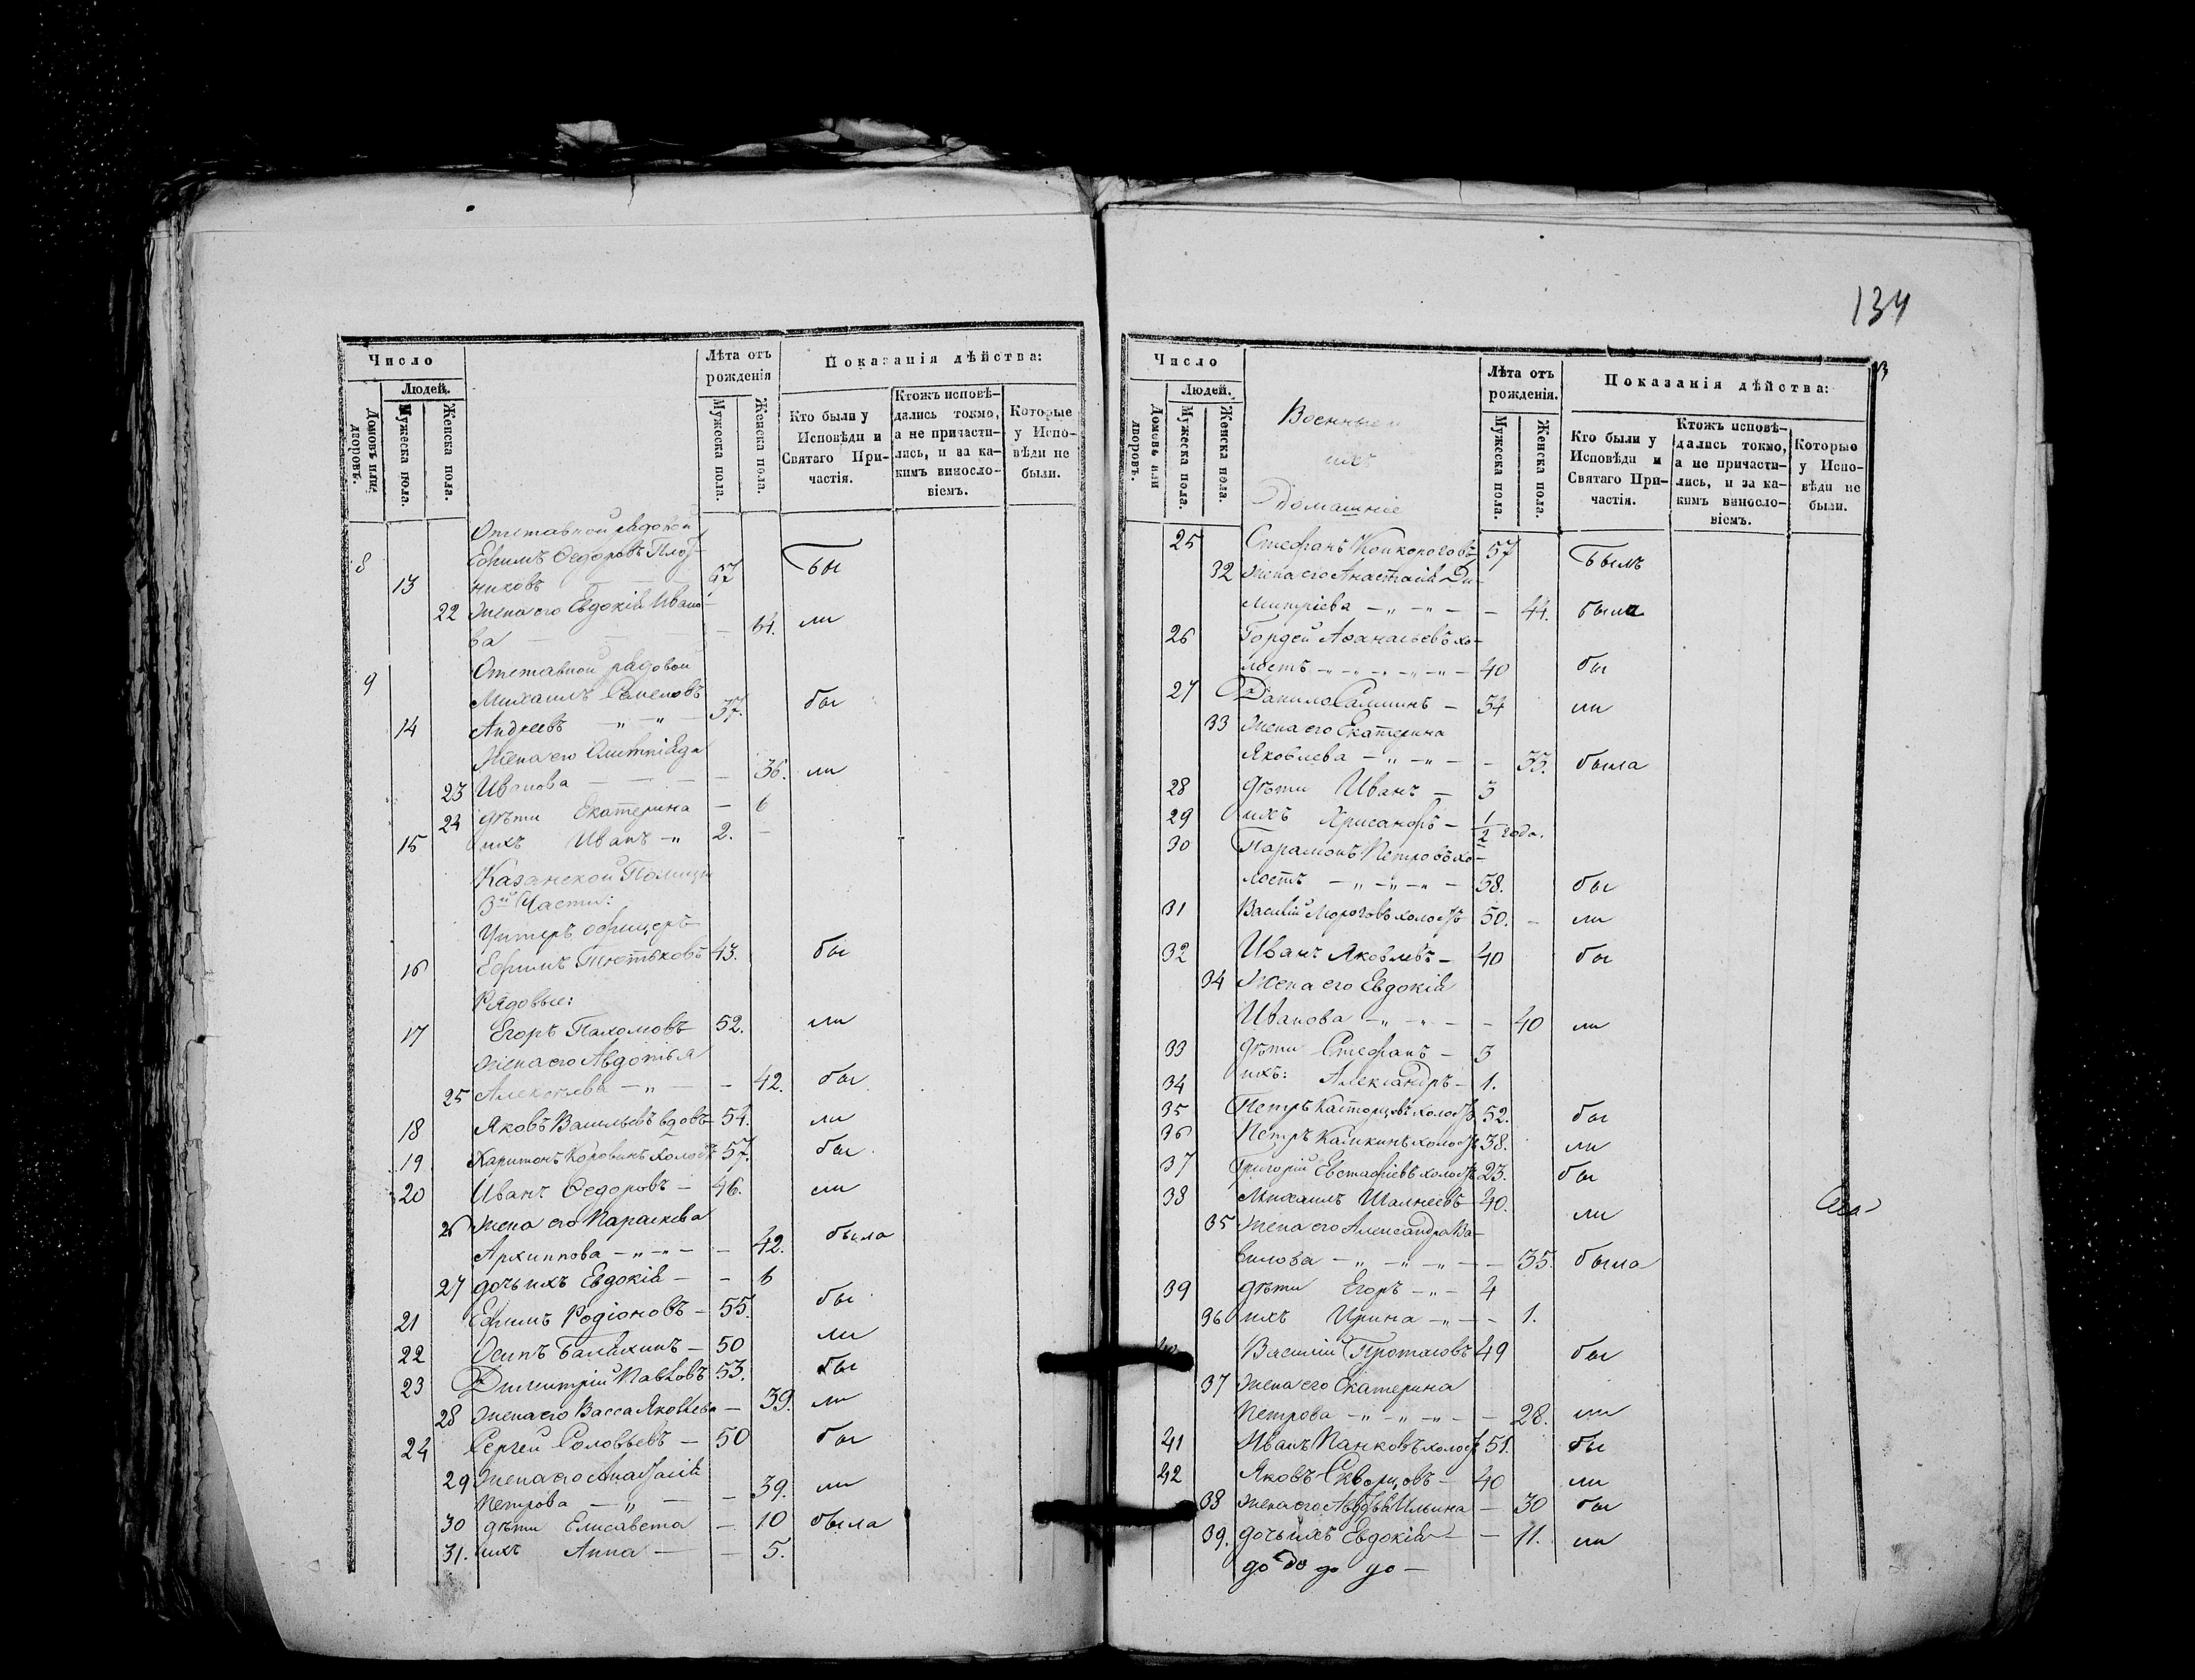 Число
Людей.
Домовъ или дворовъ.
Мужеска пола.
Женска пола.
Лѣта отъ рожденія
Мужеска пола.
Женска пола.
Показанія дѣйства:
Кто были у Исповѣди и Святаго Причастія.
Ктожъ исповѣдались токмо, а не причастились, и за какимъ винословіемъ.
Которые у Исповѣди не были.
Отставной рядовой
8 Ефимъ Ѳедоровъ бы
13 никовъ 67
22 жена его Евдокія Ивано-
ва — — 64. ли
Отставной рядовой
9 Михаилъ Семеновъ бы
14 Андреевъ — „ — „ — 37.
жена его
23 Иванова — — — 36. ли
24 дѣти Екатерина — 6
15 ихъ Иванъ — „ 2. —
Казанской Полиціи
3й Части:
Унтеръ офицеръ
16 Ефимъ Тютяковъ 43. бы
Рядовые:
17 Егоръ Пахомовъ 52. ли
жена его Авдотья
25 Алексѣева — „ — — 42. бы
18 Яковъ Васильевъ вдовъ 54. ли
19 Харитонъ Коровинъ холостъ 57. бы
20 Иванъ Ѳедоровъ — 46. ли
26 жена его Параскева
Архиппова — „ — „ — — 42. была
27 дочь ихъ Евдокія — — 6
21 Ефимъ Родіоновъ — 55. бы
22 Осипъ Балакинъ — 50 ли
23 Димитрій Павловъ 53. бы
28 жена его Васса Яковлева — 39. ли
24 Сергей Соловьевъ — 50 бы
29 жена его Анастасія
Петрова — „ — — 39. ли
30 дѣти Елисавета — 10 была
31. ихъ Анна — — 5.
134
Число
Людей.
Домовъ или дворовъ.
Мужеска пола.
Женска пола.
Военные и
ихъ
Домашніе
Лѣта отъ рожденія.
Мужеска пола.
Женска пола.
Показанія дѣйства:
Кто были у Исповѣди и Святаго Причастія.
Ктожъ исповѣдались токмо, а не причастились, и за какимъ винословіемъ.
Которые у Исповѣди не были.
25 Стефанъ 57 былъ
32 жена его Анастасія Ди-
митріева — „ — „ — — 44. была
26 Гордей Аѳанасьевъ хо-
лостъ — „ — „ — „ — „ — 40 бы
27 Данило — 34 ли
33 жена его Екатерина
Яковлева — „ — „ — — 33. была
28 дѣти Иванъ — 3
29 ихъ Хрисанфъ — 1/2 года.
30 Парамонъ Петровъ хо-
лостъ — „ — „ — „ — 38. бы
31 Василій Морозовъ холостъ 50. — ли
32 Иванъ Яковлевъ — 40 бы
34 жена его Евдокія
Иванова — „ — „ — — 40 ли
33 дѣти Стефанъ — 3
34 ихъ: Александръ — 1.
35 Петръ холостъ 52. бы
36 Петръ Калмкинъ холостъ 38. ли
37 Григорій Евстафіевъ холостъ 23. бы
38 Михаилъ 40. ли
35 жена его Александра Ва-
вилова — „ — „ — „ — — 35. была
39 дѣти Егоръ — „ — 4
36 ихъ Ирина — „ — — 1.
40 Василій Протасовъ 49 бы
37 жена его Екатерина
Петрова — „ — „ — „ — — 28. ли
41 Иванъ Панковъ холостъ 51. бы
42 Яковъ Скворцовъ — 40 ли
38 жена его Авдотья Ильина — 30 бы
39. дочь ихъ Евдокія — — 11. ли
до до до до —